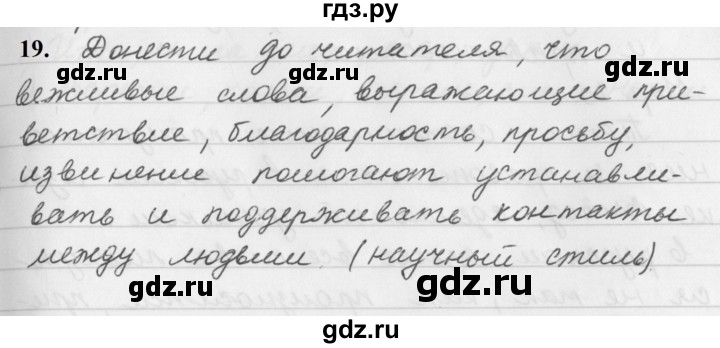 гдз.ру
19. Донести до читателя, что
вежливые слова, выражающие при-
ветствие, благодарность, просьбу,
извинение помогают устанавли-
вать и поддерживать контакты
между людьми. (научный стиль).
gdz.ru
gdz.ru
gdz.ru
gdz.ru